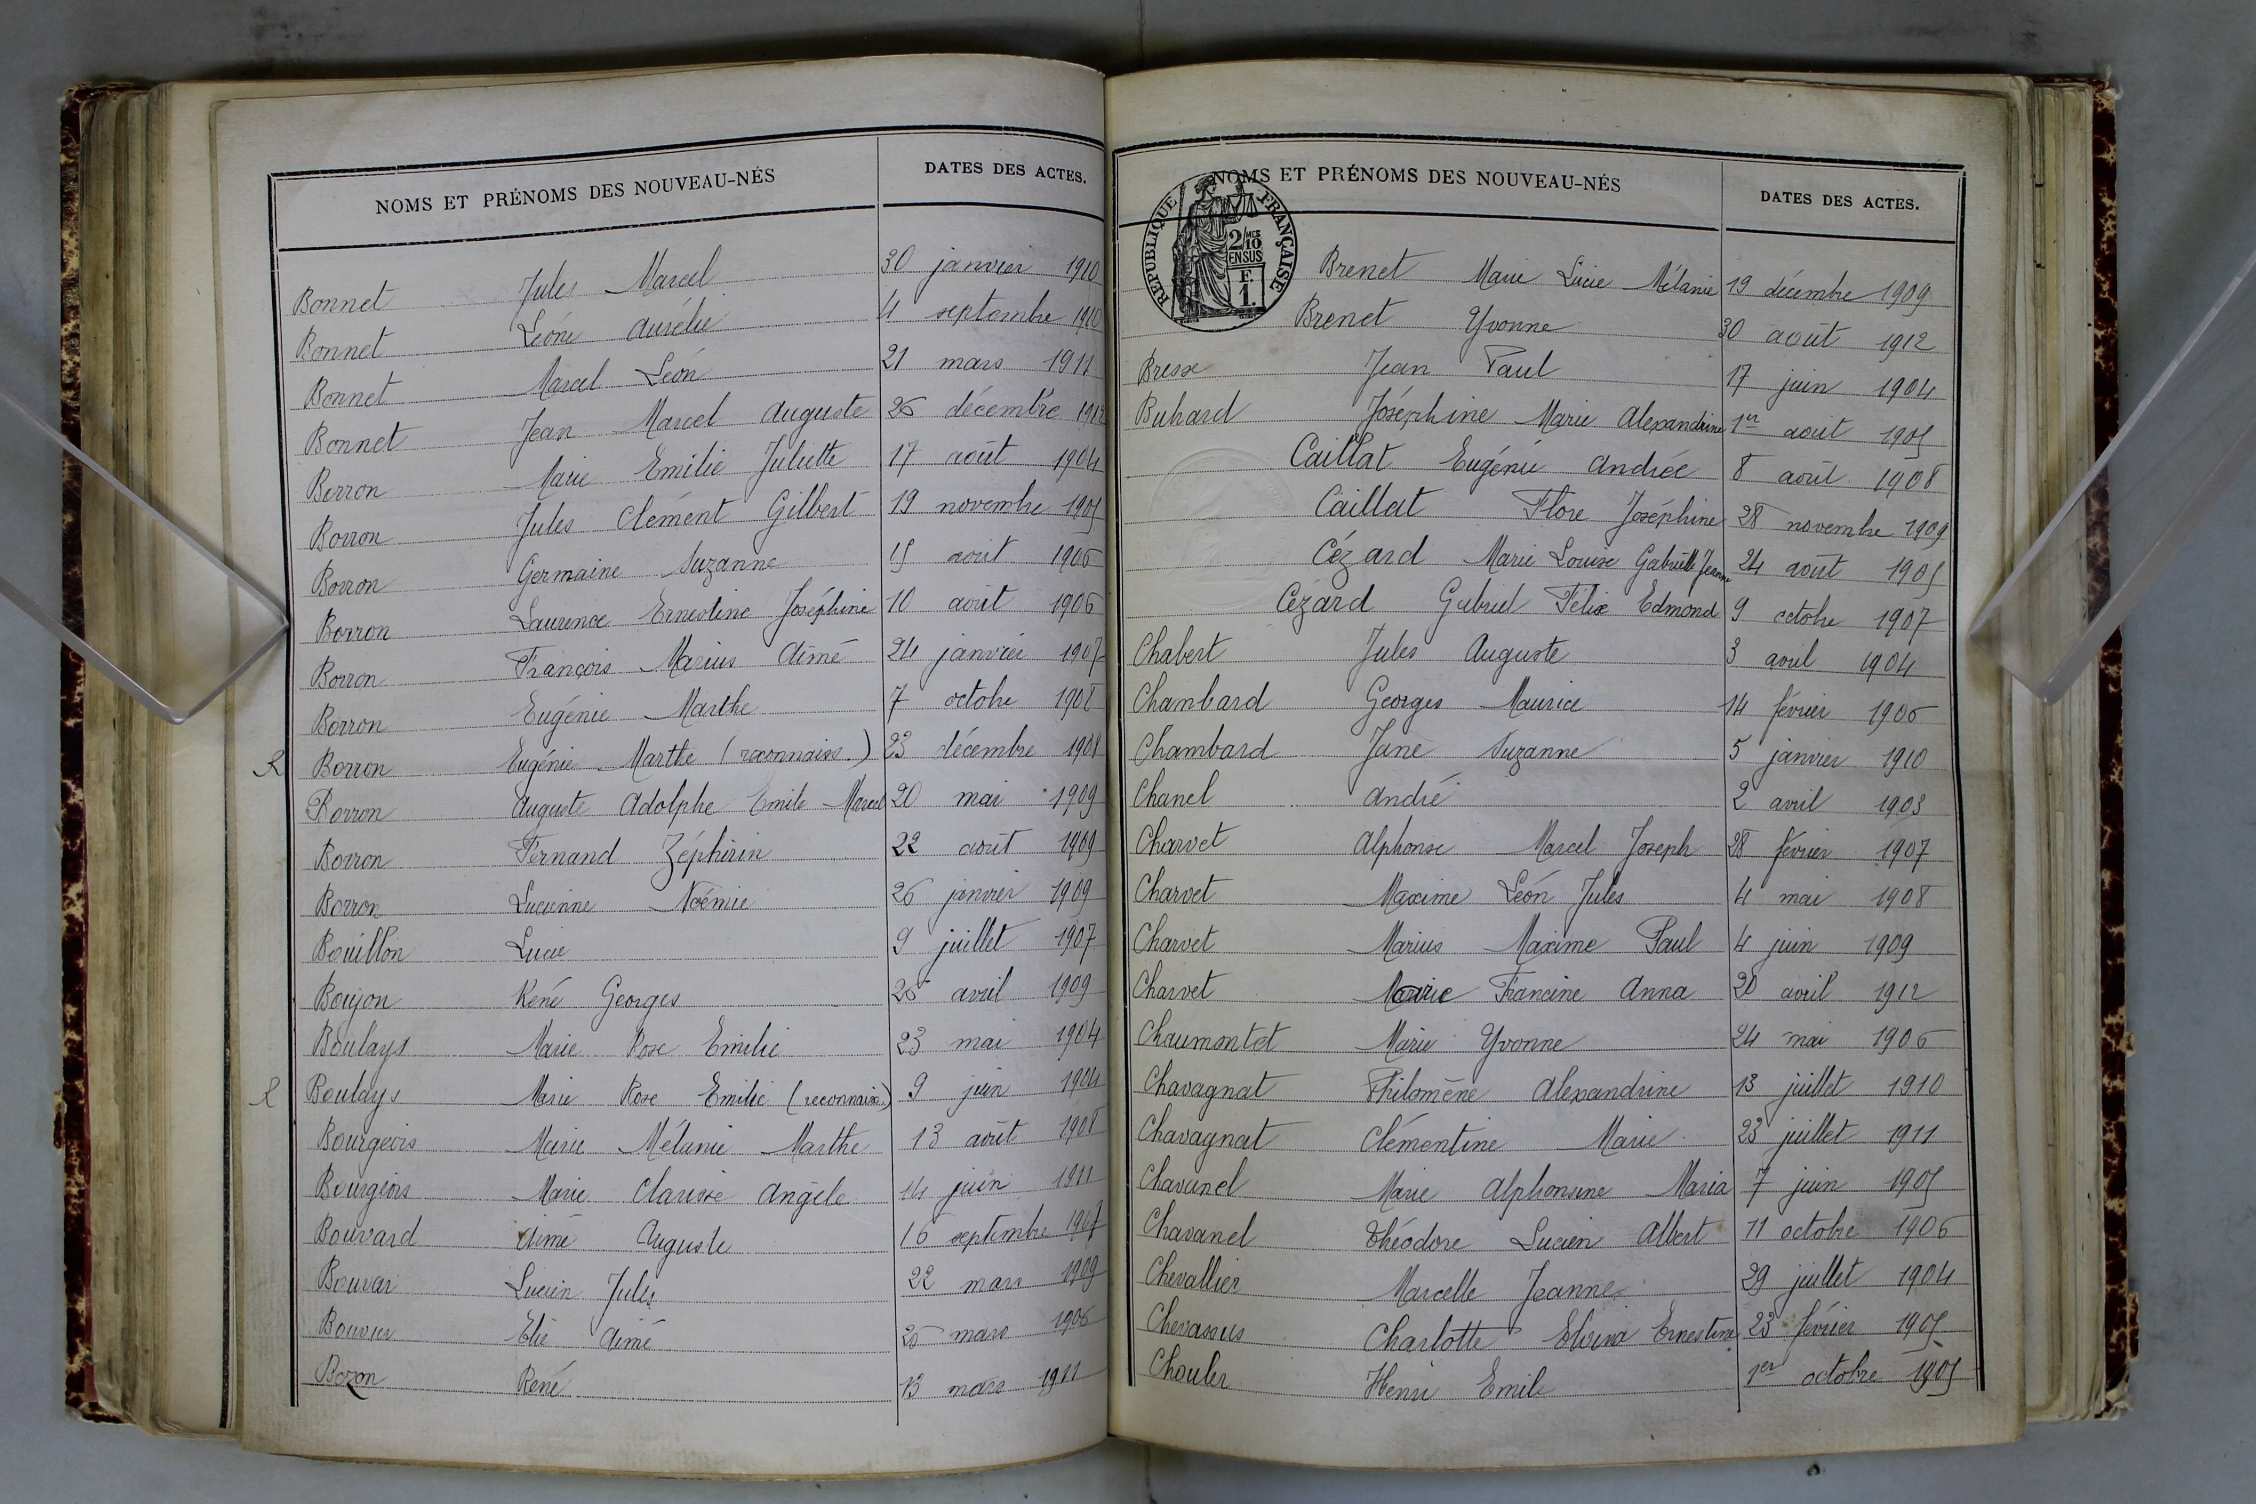 NOMS ET PRÉNOMS DES NOUVEAU-NÉS DATES DES ACTES.
Bonnet Jules Marcel 30 janvier 1910
Bonnet Léonie Aurélie 4 septembre 1910
Bonnet Marcel Léon 21 mars 1911
Bonnet Jean Marcel Auguste 26 décembre 1912
Borron Marie Emilie Juliette 17 août 1904
Borron Jules Clément Gilbert 19 novembre 1905
Borron Germaine Suzanne 15 août 1906
Borron Laurence Ernestine Joséphine 10 août 1906
Borron François Marius Aimé 24 janvier 1907
Borron Eugénie Marthe 7 octobre 1908
R Borron Eugénie Marthe (reconnaiss.) 23 décembre 1908
Borron Auguste Adolphe Emile Marcel 20 mai 1909
Borron Fernand Zéphirin 22 août 1909
Borron Lucienne Noémie 26 janvier 1909
Bouillon Lucie 9 juillet 1907
Boujon René Georges 26 avril 1909
Boulays Marie Rose Emilie 23 mai 1904
R Boulays Marie Rose Emilie (reconnaiss.) 9 juin 1904
Bourgeois Marie Mélanie Marthe 13 août 1908
Bourgeois Marie Clarisse Angèle 14 juin 1911
Bouvard Aimé Auguste 16 septembre 1907
Bouvar Lucien Jules 22 mars 1909
Bouvier Elie Aimé 26 mars 1906
Bozon René 13 mars 1911
NOMS ET PRÉNOMS DES NOUVEAU-NÉS DATES DES ACTES.
RÉPUBLIQUE FRANÇAISE
2/10 MES
EN SUS
F.
1.
Brenet Marie Lucie Mélanie 19 décembre 1909
Brenet Yvonne 30 août 1912
Bresse Jean Paul 17 juin 1904
Buhard Joséphine Marie Alexandrine 1er août 1905
Caillat Eugénie Andrée 8 août 1908
Caillat Flore Joséphine 28 novembre 1909
Cézard Marie Louise Gabrielle Jeanne 24 août 1905
Cézard Gabriel Félix Edmond 9 octobre 1907
Chabert Jules Auguste 3 avril 1904
Chambard Georges Maurice 14 février 1906
Chambard Jane Suzanne 5 janvier 1910
Chanel André 2 avril 1903
Charvet Alphonse Marcel Joseph 28 février 1907
Charvet Maxime Léon Jules 4 mai 1908
Charvet Marius Maxime Paul 4 juin 1909
Charvet Marie Francine Anna 20 avril 1912
Chaumontet Marie Yvonne 24 mai 1906
Chavagnat Philomène Alexandrine 13 juillet 1910
Chavagnat Clémentine Marie 23 juillet 1911
Chavanel Marie Alphonsine Maria 7 juin 1905
Chavanel Théodore Lucien Albert 11 octobre 1906
Chevallier Marcelle Jeanne 29 juillet 1904
Chevassus Charlotte Elvina Ernestine 23 février 1905
Chouler Henri Emile 1er octobre 1905